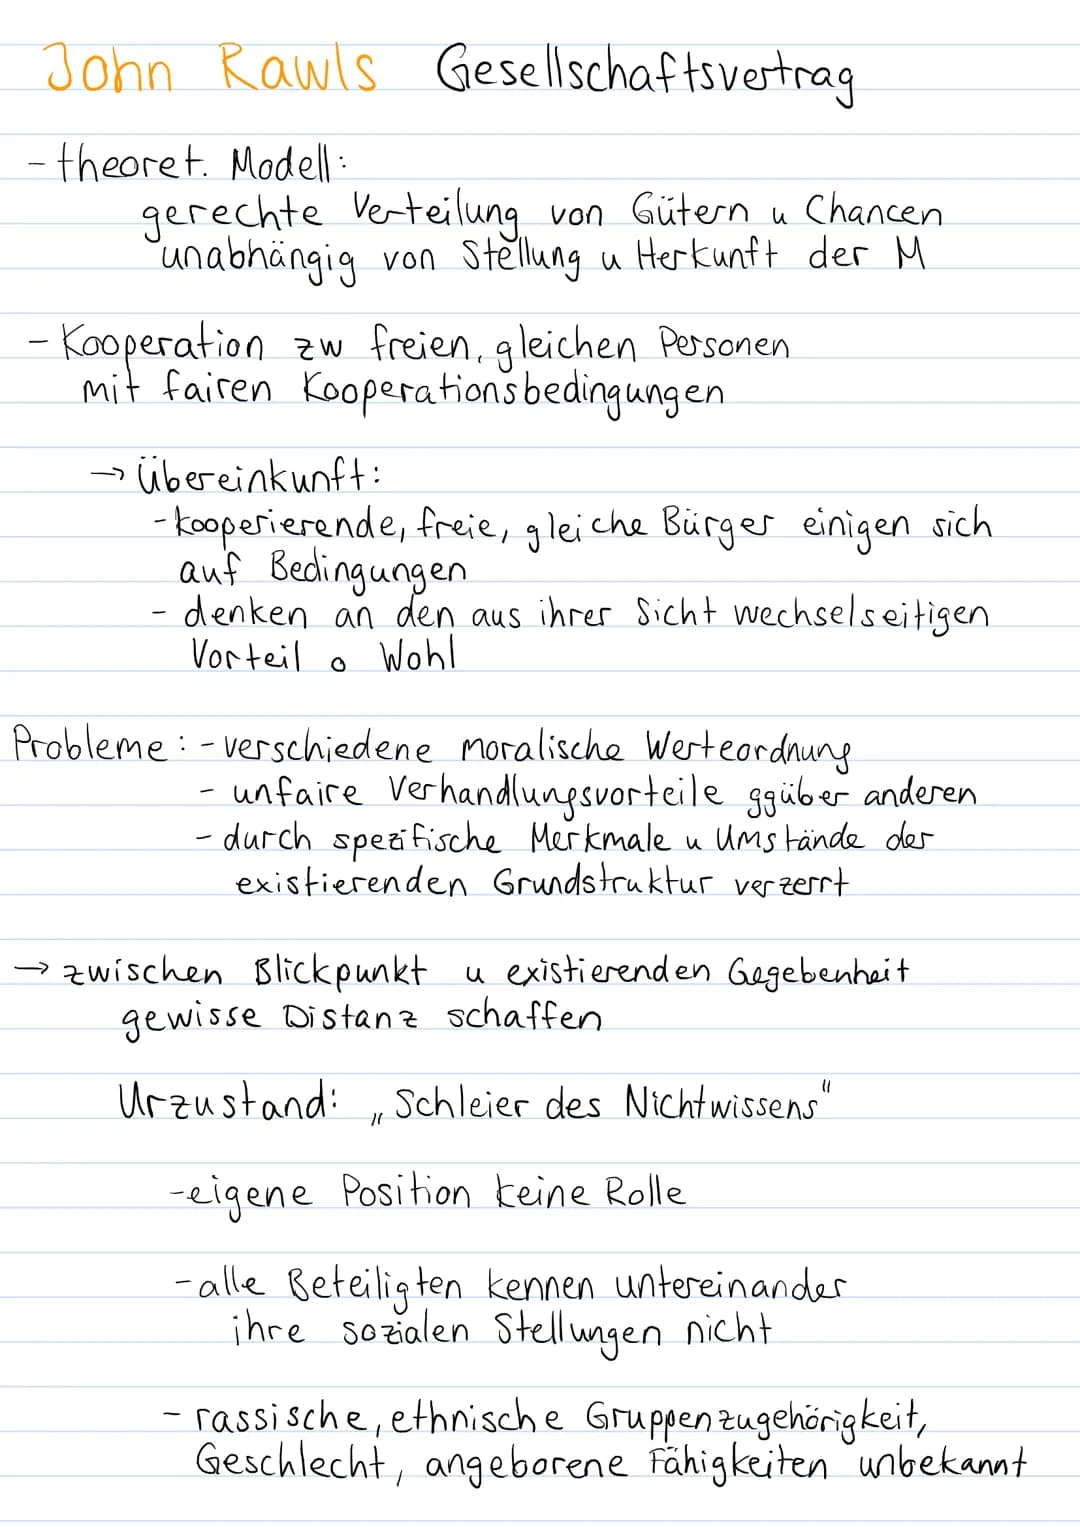 John Rawls Gesellschaftsvertrag
- theoret. Modell:
gerechte Verteilung von Gütern u Chancen
unabhängig von Stellung u Herkunft der M
- Kooperation zw freien, gleichen Personen
mit fairen Kooperationsbedingungen
→ Übereinkunft:
- kooperierende, freie, gleiche Bürger einigen sich
auf Bedingungen
- denken an den aus ihrer Sicht wechselseitigen
Vorteil o Wohl
Probleme: - verschiedene moralische Werteordnung
- unfaire Verhandlungsvorteile ggüber anderen
- durch spezifische Merkmale u Umstände der
existierenden Grundstruktur verzerrt
→ zwischen Blickpunkt u existierenden Gegebenheit
gewisse Distanz schaffen
Urzustand: „Schleier des Nichtwissens"
- eigene Position keine Rolle
- alle Beteiligten kennen untereinander
ihre sozialen Stellungen nicht
- rassische, ethnische Gruppenzugehörigkeit,
Geschlecht, angeborene Fähigkeiten unbekannt